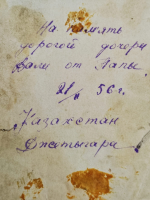 На память
дорогой дочери
Вали от Папы.
21/II 56 г.
Казахстан
Джетыгара